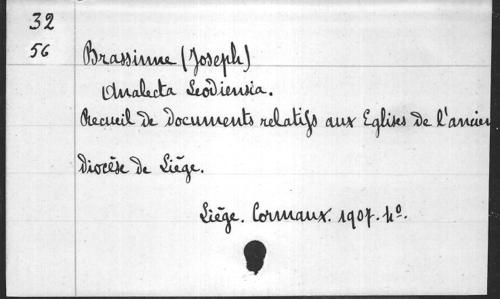 32
56
Brassinne (Joseph)
Analecta Leodiensia.
Recueil de documents relatifs aux Eglises de l'ancien
diocèse de Liége.
Liége. Cormaux. 1907. 4º.